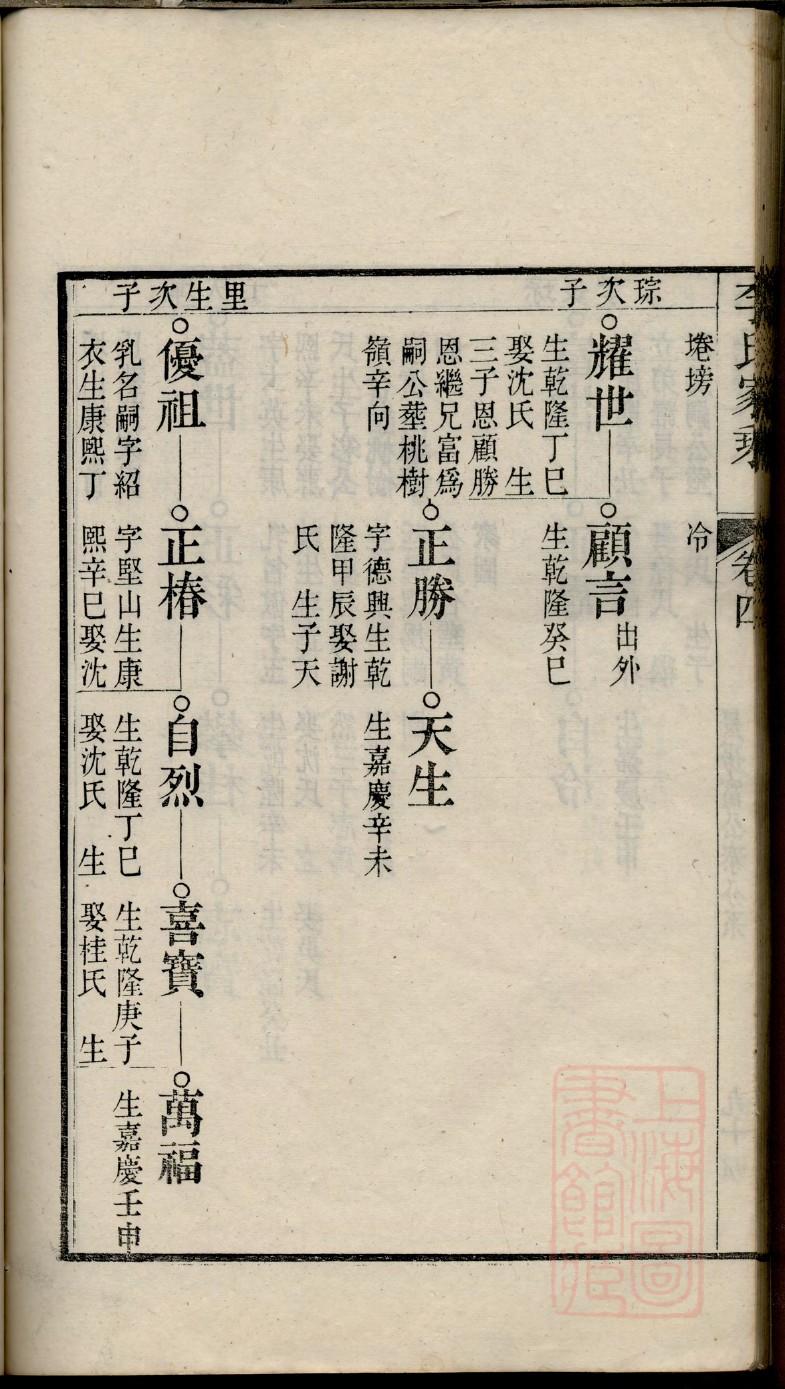 李氏家乘
卷四
埢塝
冷
琮次子
耀世
生乾隆丁巳
娶沈氏 生
三子恩顧勝
恩繼兄富為
嗣公塟桃樹
嶺辛向
顧言 出外
生乾隆癸巳
正勝
字德興生乾
隆甲辰娶謝
氏 生子天
天生
生嘉慶辛未
里生次子
優祖
乳名嗣字紹
衣生康熙丁
正椿
字堅山生康
熙辛巳娶沈
自烈
生乾隆丁巳
娶沈氏 生
喜寶
生乾隆庚子
娶桂氏 生
萬福
生嘉慶壬申
上海圖
書館藏